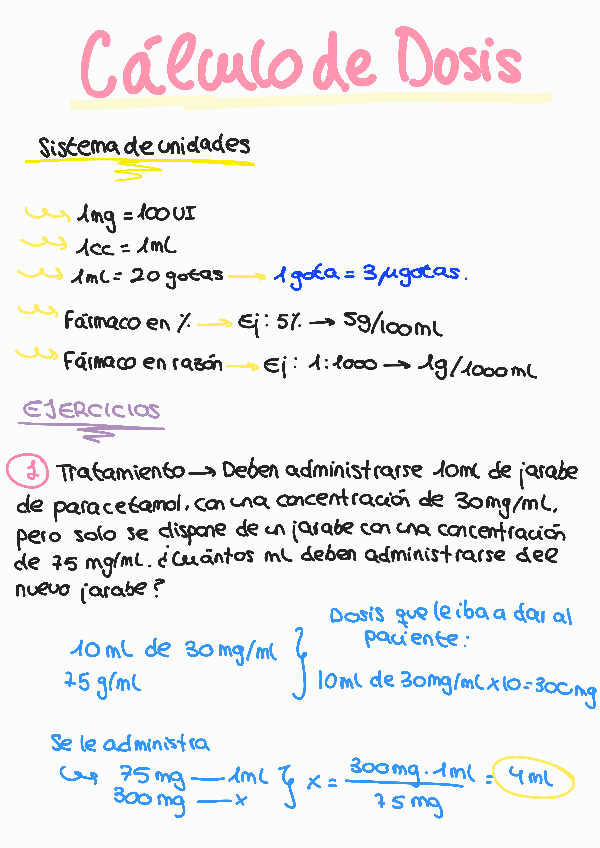 Cálculo de Dosis
Sistema de unidades
1mg = 100 UI
1cc = 1mL
1mL = 20 gotas → 1 gota = 3 µgotas.
Fármaco en % → Ej: 5% → 5g/100mL
Fármaco en razón → Ej: 1:1000 → 1g/1000mL
EJERCICIOS
1 Tratamiento → Deben administrarse 10mL de jarabe
de paracetamol, con una concentración de 30mg/mL,
pero solo se dispone de un jarabe con una concentración
de 75 mg/mL. ¿Cuántos mL deben administrarse del
nuevo jarabe?
Dosis que le iba a dar al
paciente:
10mL de 30mg/ml
75 g/ml
10mL de 30mg/mL x10=300mg
Se le administra
75mg — 1mL
300mg — x
x = 300mg · 1mL / 75mg = 4ml